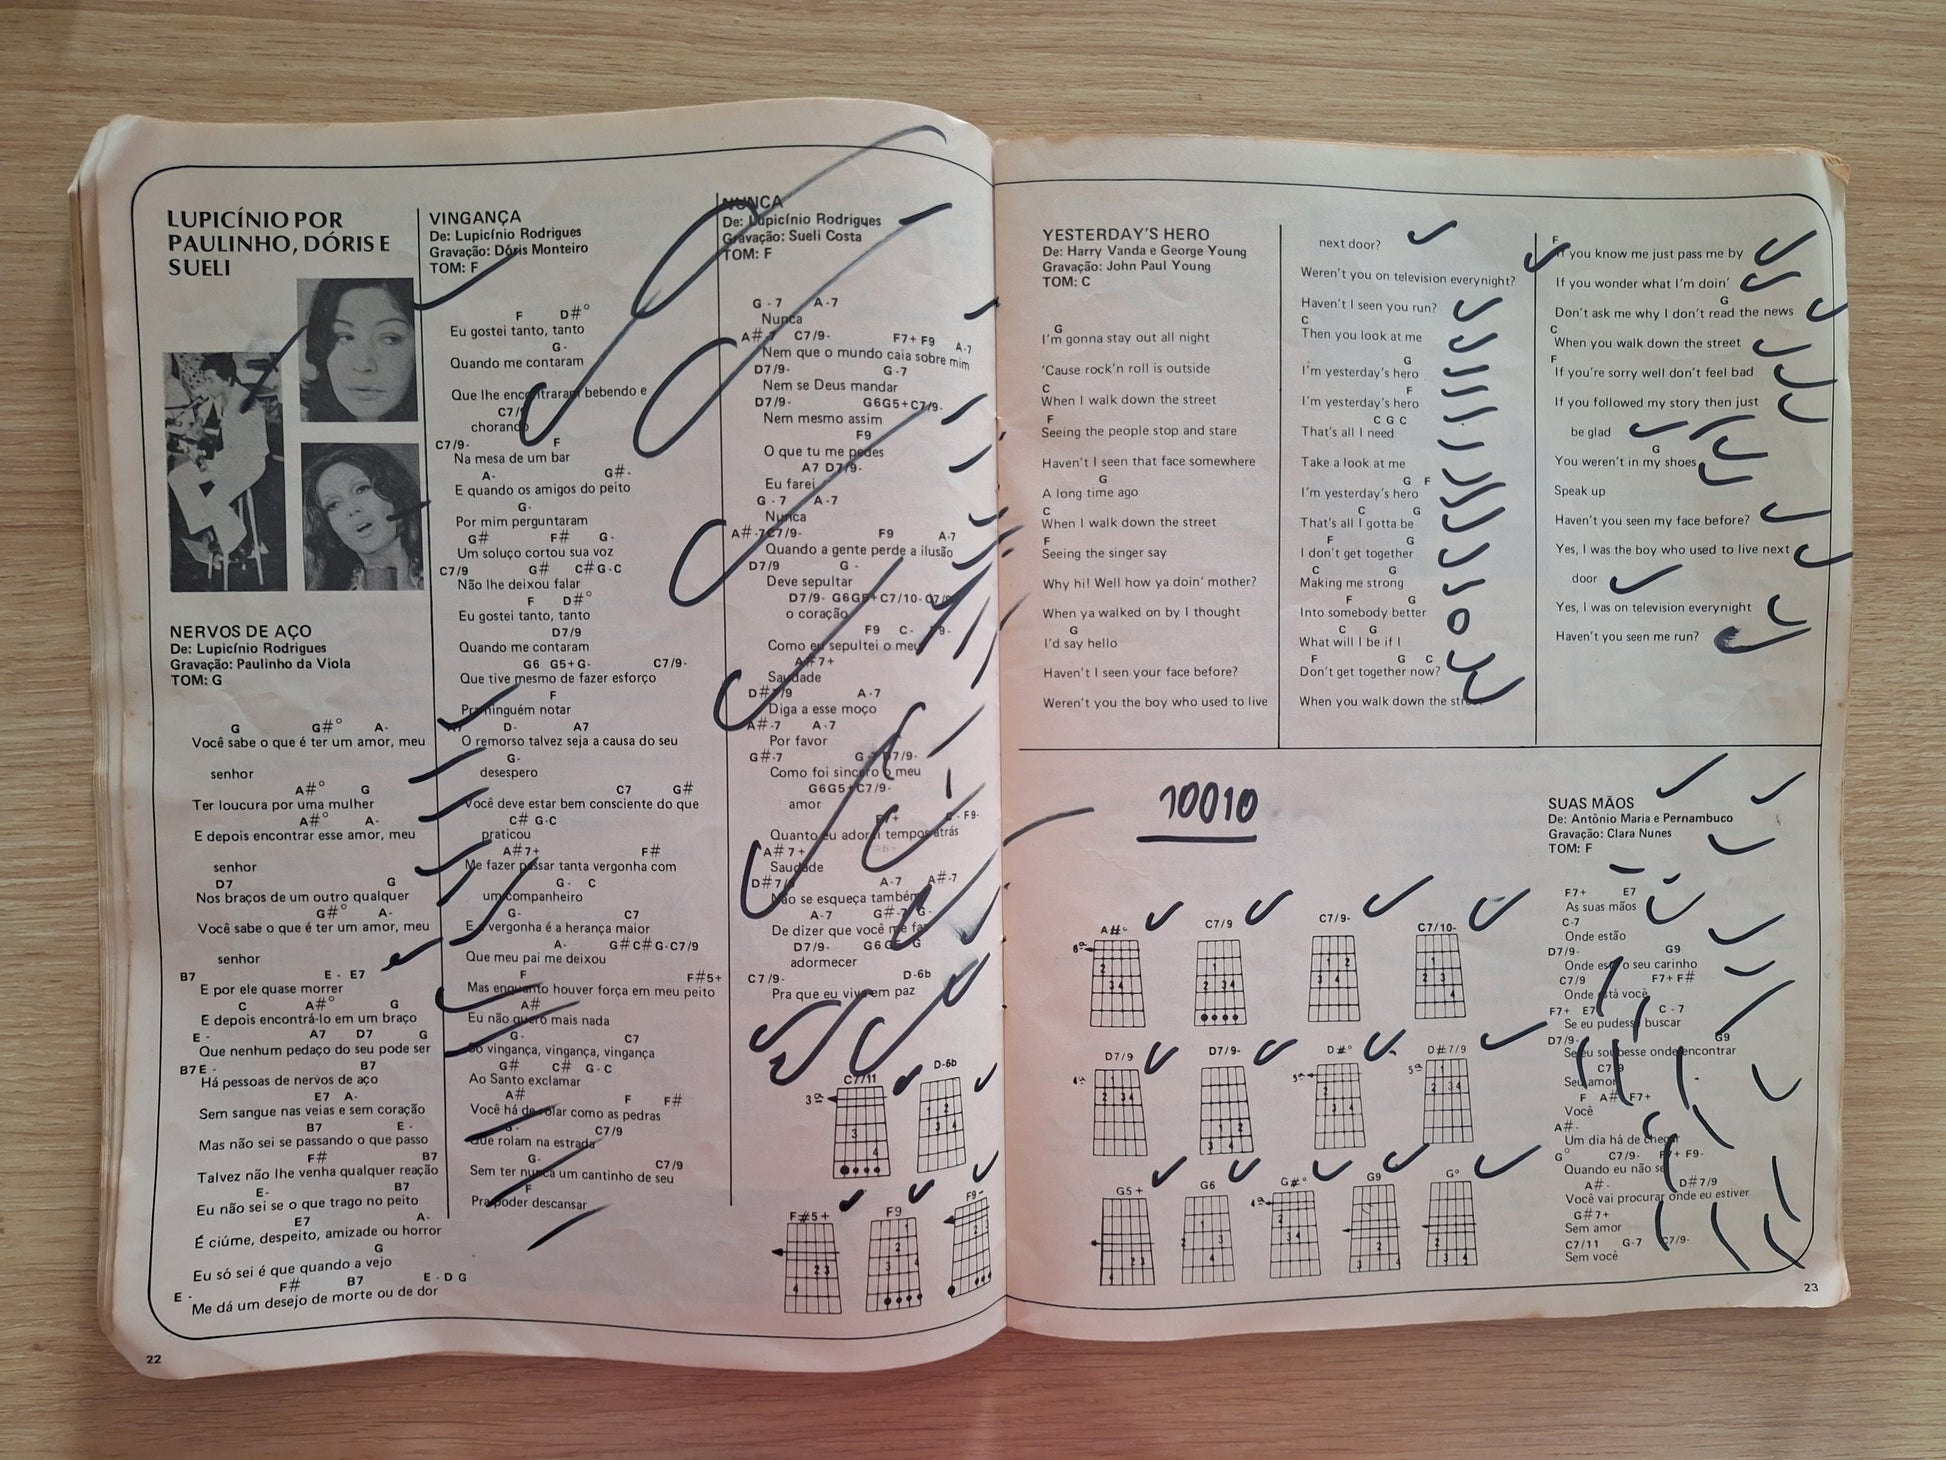 LUPICÍNIO POR
PAULINHO, DÓRIS E
SUELI
NERVOS DE AÇO
De: Lupicínio Rodrigues
Gravação: Paulinho da Viola
TOM: G
G G#° A-
Você sabe o que é ter um amor, meu
senhor
A#° G
Ter loucura por uma mulher
A#° A-
E depois encontrar esse amor, meu
senhor
D7 G
Nos braços de um outro qualquer
G#° A-
Você sabe o que é ter um amor, meu
senhor
B7 E - E7
E por ele quase morrer
C A#° G
E depois encontrá-lo em um braço
E - A7 D7 G
Que nenhum pedaço do seu pode ser
B7 E - B7
Há pessoas de nervos de aço
E7 A-
Sem sangue nas veias e sem coração
B7 E -
Mas não sei se passando o que passo
F# B7
Talvez não lhe venha qualquer reação
E- B7
Eu não sei se o que trago no peito
E7 A-
É ciúme, despeito, amizade ou horror
G
Eu só sei é que quando a vejo
E - F# B7 E - D G
Me dá um desejo de morte ou de dor
22
VINGANÇA
De: Lupicínio Rodrigues
Gravação: Dóris Monteiro
TOM: F
F D#°
Eu gostei tanto, tanto
G-
Quando me contaram
Que lhe encontraram bebendo e
C7/9
chorando
C7/9- F
Na mesa de um bar
A- G#-
E quando os amigos do peito
G-
Por mim perguntaram
G# F# G-
Um soluço cortou sua voz
C7/9 G# C# G-C
Não lhe deixou falar
F D#°
Eu gostei tanto, tanto
D7/9
Quando me contaram
G6 G5+ G- C7/9-
Que tive mesmo de fazer esforço
F
Pra ninguém notar
A7 D- A7
O remorso talvez seja a causa do seu
G-
desespero
C7 G#
Você deve estar bem consciente do que
C# G-C
praticou
A#7+ F#
Me fazer passar tanta vergonha com
G- C
um companheiro
G- C7
E a vergonha é a herança maior
A- G# C# G-C7/9
Que meu pai me deixou
F F#5+
Mas enquanto houver força em meu peito
A#
Eu não quero mais nada
G- C7
Só vingança, vingança, vingança
G# C# G-C
Ao Santo exclamar
A# F F#
Você há de rolar como as pedras
G- C7/9
Que rolam na estrada
G- C7/9
Sem ter nunca um cantinho de seu
F
Pra poder descansar
NUNCA
De: Lupicínio Rodrigues
Gravação: Sueli Costa
TOM: F
G - 7 A-7
Nunca
A#-7 C7/9- F7+ F9 A-7
Nem que o mundo caia sobre mim
D7/9- G-7
Nem se Deus mandar
D7/9- G6G5+C7/9-
Nem mesmo assim
F9
O que tu me pedes
A7 D7/9-
Eu farei
G - 7 A-7
Nunca
A#-7C7/9- F9 A-7
Quando a gente perde a ilusão
D7/9 G -
Deve sepultar
D7/9- G6G5+C7/10- C7/9
o coração
F9 C- F9-
Como eu sepultei o meu
A#7+
Saudade
D#7/9 A-7
Diga a esse moço
A#-7 A-7
Por favor
G#-7 G-7 D7/9-
Como foi sincero o meu
G6G5+C7/9-
amor
F7+ C - F9-
Quanto eu adorei tempos atrás
A#7+
Saudade
D#7/9 A-7 A#-7
Não se esqueça também
A-7 G#-7 G-
De dizer que você me faz
D7/9- G6 G5 G
adormecer
C7/9- D-6b
Pra que eu viva em paz
C7/11 D-6b
3ª
3 4
1 2 3 4
F#5+ F9 F9-
2 3 4
1 2 3 4
1 2 3
YESTERDAY'S HERO
De: Harry Vanda e George Young
Gravação: John Paul Young
TOM: C
G
I'm gonna stay out all night
'Cause rock'n roll is outside
C
When I walk down the street
F
Seeing the people stop and stare
Haven't I seen that face somewhere
G
A long time ago
C
When I walk down the street
F
Seeing the singer say
Why hi! Well how ya doin' mother?
When ya walked on by I thought
G
I'd say hello
Haven't I seen your face before?
Weren't you the boy who used to live
next door?
Weren't you on television everynight?
Haven't I seen you run?
C
Then you look at me
G
I'm yesterday's hero
F
I'm yesterday's hero
C G C
That's all I need
Take a look at me
G F
I'm yesterday's hero
C G
That's all I gotta be
F G
I don't get together
C G
Making me strong
F G
Into somebody better
C G
What will I be if I
F G C
Don't get together now?
When you walk down the street
F
If you know me just pass me by
If you wonder what I'm doin'
G
Don't ask me why I don't read the news
C
When you walk down the street
F
If you're sorry well don't feel bad
If you followed my story then just
be glad
G
You weren't in my shoes
Speak up
Haven't you seen my face before?
Yes, I was the boy who used to live next
door
Yes, I was on television everynight
Haven't you seen me run?
10010
A#° C7/9 C7/9- C7/10-
6ª
2 3 4
1 2 3 4
1 2 3 4
1 2 3 4
D7/9 D7/9- D#° D#7/9
4ª 5ª 5ª
1 2 3 4
1 2 3 4
2 3 4
1 2 3 4
G5+ G6 G#° G9 G°
4ª
2 3 4
1 2 3 4
2 3 4
2 3 4
2 3 4
SUAS MÃOS
De: Antônio Maria e Pernambuco
Gravação: Clara Nunes
TOM: F
F7+ E7
As suas mãos
C-7
Onde estão
D7/9- G9
Onde está o seu carinho
C7/9 F7+ F#
Onde está você
F7+ E7 C - 7
Se eu pudesse buscar
D7/9- G9
Se eu soubesse onde encontrar
C7/9
Seu amor
F A# F7+
Você
A#-
Um dia há de chegar
G° C7/9- F7+ F9-
Quando eu não sei
A#- D#7/9
Você vai procurar onde eu estiver
G#7+
Sem amor
C7/11 G-7 C7/9-
Sem você
23